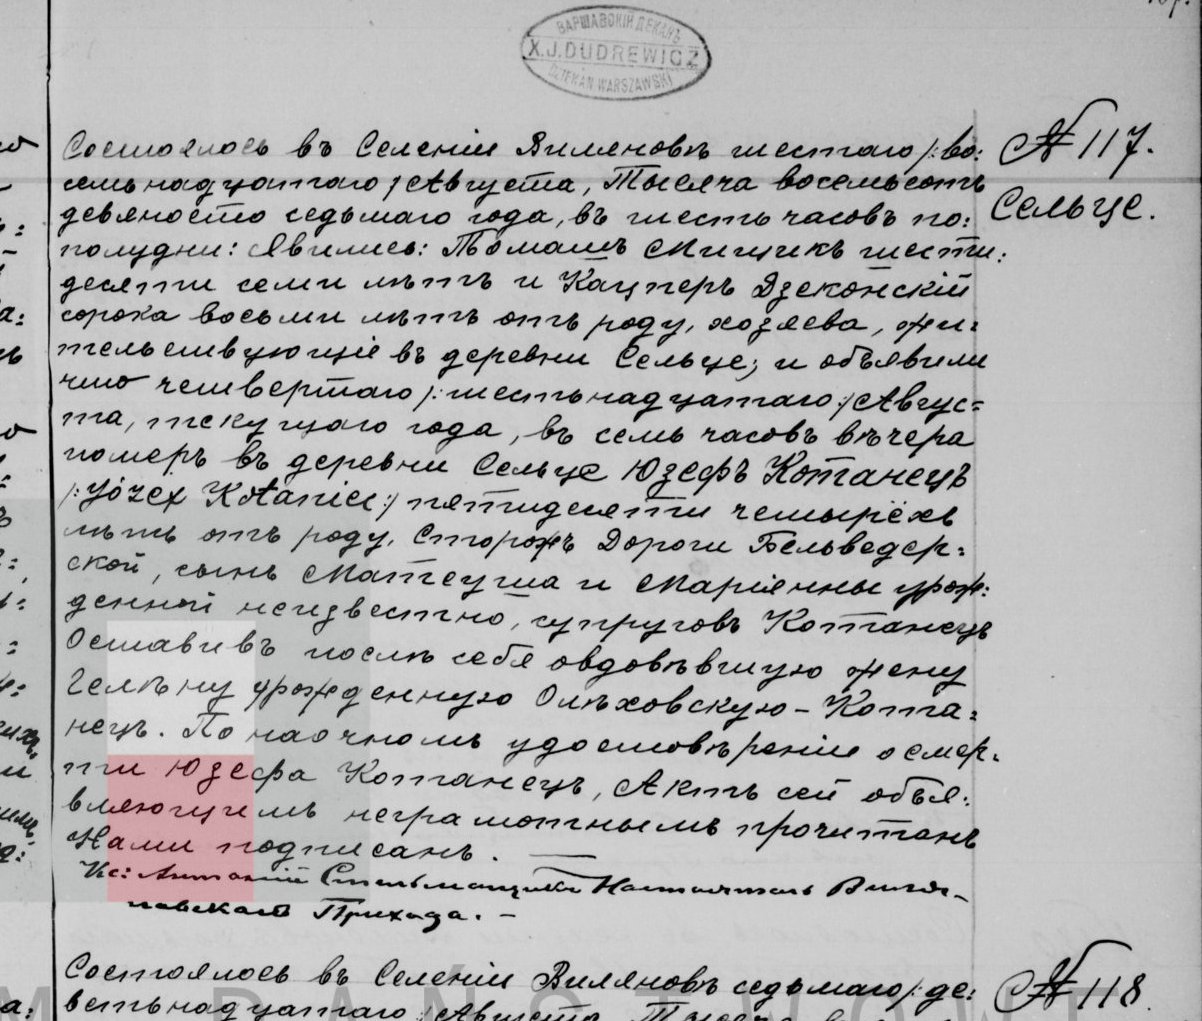 ВАРШАВСКІЙ ДЕКАНЪ
X.J.DUDREWICZ
DZIEKAN WARSZAWSKI
№ 117.
Сельце.
Состоялось въ Селеніи Виляновъ шестаго /: во:
семьнадцатаго :/ Августа, Тысяча восемьсотъ
девяносто седьмаго года, въ шесть часовъ по:
полудни: Явились: Томашъ Мищикъ шести:
десяти семи лѣтъ и Кацперъ Дзеконскій
сорока восьми лѣтъ отъ роду, хозяева, жи:
тельствующіе въ деревни Сельце; и объявили
что четвертаго /: шестьнадцатаго :/ Авгус=
та, текущаго года, въ семь часовъ вѣчера
померъ въ деревни Сельце Юзефъ Котанецъ
/: Józef Kotaniec :/ пятидесяти четырёхъ
лѣтъ отъ роду, Сторожъ Дороги Бельведер=
ской, сынъ Матеуша и Маріянны урож:
денной неизвестно, супруговъ Котанецъ
Оставивъ послѣ себя овдовѣвшую жену
Гелѣну урожденную Олѣховскую – Кота=
нецъ. По наочномъ удостовѣреніи о смер=
ти Юзефа Котанецъ, Актъ сей объя:
вляющимъ неграмотнымъ прочитанъ
Нами подписанъ. —
Кс: Антоній Настоятель Виля-
новскаго Прихода. –
Состоялось въ Селеніи Виляновъ седьмаго /: де:
вятьнадцатаго :/ Августа, Тысяча
№ 118.